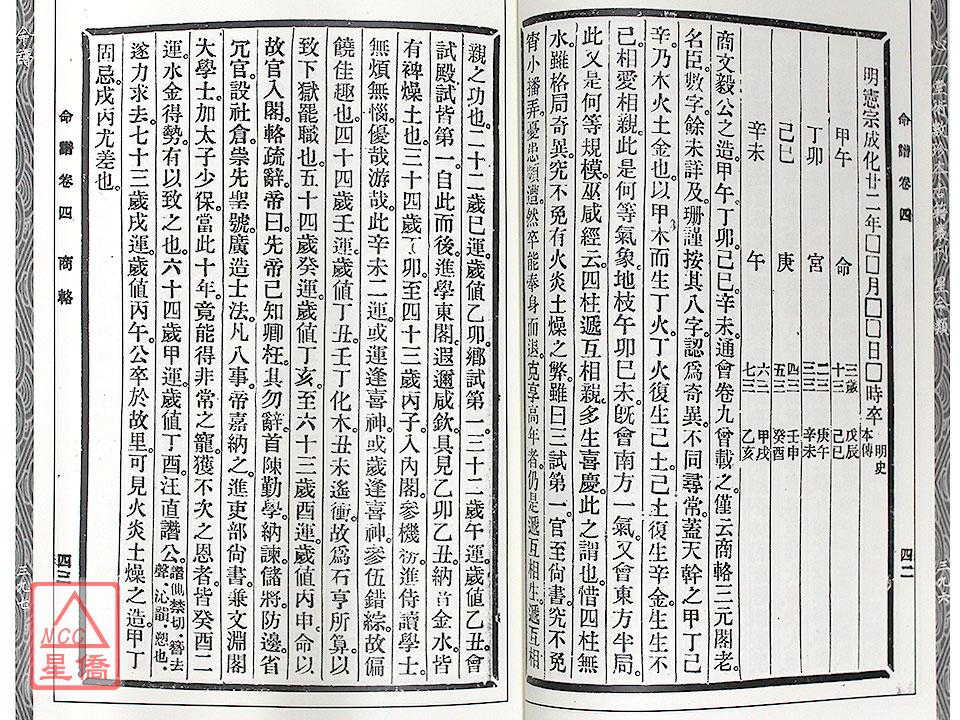 命譜卷四
四二
明憲宗成化廿二年□□月□□日□時卒
明史
本傳
甲午 命
丁卯 宮
己巳 庚
辛未 午
三歲 戊辰
十三 己巳
二三 庚午
三三 辛未
四三 壬申
五三 癸酉
六三 甲戌
七三 乙亥
商文毅公之造。甲午。丁卯。己巳。辛未。通會卷九曾載之。僅云商輅三元閣老
名臣。數字。餘未詳及。珊謹按其八字。認爲奇異。不同尋常。蓋天幹之甲丁己
辛。乃木火土金也。以甲木而生丁火。丁火復生己土。己土復生辛金。生生不
已。相愛相親。此是何等氣象。地枝午卯巳未。旣會南方一氣。又會東方半局。
此又是何等規模。巫咸經云。四柱遞互相親。多生喜慶。此之謂也。惜四柱無
水。雖格局奇異。究不免有火炎土燥之弊。雖曰三試第一。官至尙書。究不免
宵小播弄。憂患頻遭。然卒能奉身而退。克享高年者。仍是遞互相生。遞互相
親之功也。二十二歲巳運。歲値乙卯。鄉試第一。三十二歲午運。歲値乙丑。會
試殿試皆第一。自此而後。進學東閣。遐邇咸欽。具見乙卯乙丑。納音金水。皆
有裨燥土也。三十四歲丁卯。至四十三歲丙子。入內閣。參機務。進侍讀學士。
無煩無惱。優哉游哉。此辛未二運。或運逢喜神。或歲逢喜神。參伍錯綜。故偏
饒佳趣也。四十四歲壬運。歲値丁丑。壬丁化木。丑未遙衝。故爲石亨所算。以
致下獄罷職也。五十四歲癸運。歲値丁亥。至六十三歲酉運。歲値丙申。命以
故官入閣。輅疏辭。帝曰。先帝已知卿枉。其勿辭。首陳勤學納諫。儲將防邊。省
冗官。設社倉。崇先聖號。廣造士法。凡八事。帝嘉納之。進吏部尙書。兼文淵閣
大學士。加太子少保。當此十年。竟能得非常之寵。獲不次之恩者。皆癸酉二
運。水金得勢。有以致之也。六十四歲甲運。歲値丁酉。汪直譖公。譖側禁切。簪去聲。沁韻。愬也。
遂力求去。七十三歲戌運。歲値丙午。公卒於故里。可見火炎土燥之造。甲丁
固忌。戌丙尤差也。
命譜卷四 商輅
四三
三九七
NCC
星僑